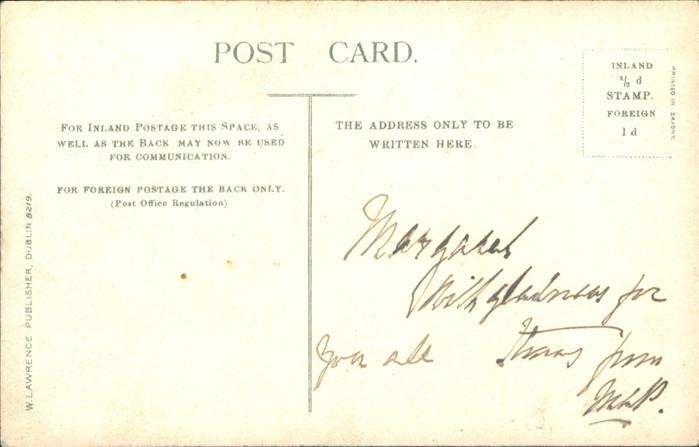 POST CARD.
FOR INLAND POSTAGE THIS SPACE, AS
WELL AS THE BACK MAY NOW BE USED
FOR COMMUNICATION.
FOR FOREIGN POSTAGE THE BACK ONLY.
(Post Office Regulation)
W. LAWRENCE PUBLISHER, DUBLIN 8219.
THE ADDRESS ONLY TO BE
WRITTEN HERE.
INLAND
½ d
STAMP.
FOREIGN
1 d
PRINTED IN SAXONY
Margaret
With gladness for
you all from